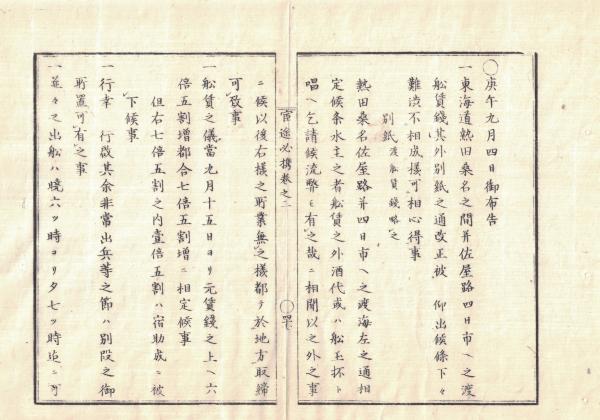 ○庚午九月四日御布告
一東海道熱田桑名之間并佐屋路四日市ヘ之渡
舩賃錢其外別紙之通改正被 仰出候條下々
難澁不相成樣可相心得事
別紙渡舩賃錢略之
熱田桑名佐屋路并四日市ヘ之渡海左之通相
定候条水主之者舩賃之外酒代或ハ舩玉抔ト
唱ヘ乞請候流弊モ有之哉ニ相聞以之外之事
官途必携巻之二
ニ候以後右樣之所業無之樣都テ於地方取締
可致事
一舩賃之儀當九月十五日ヨリ元賃錢之上ヘ六
倍五割增都合七倍五割增ニ相定候事
但右七倍五割之内壹倍五割ハ宿助成ニ被
下候事
一行幸 行啟其余非常出兵等之節ハ別段之御
所置可有之事
一並々之出舩ハ曉六ツ時ヨリ夕七ツ時迄ニ可